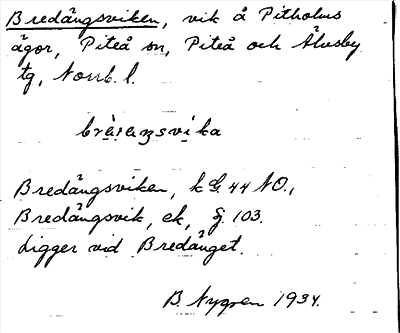 Bredängsviken, vik å Pitholms
ägor, Piteå sn, Piteå och Älvsby
tg, Norrb. l.
Bredängsviken, k G. 44 NO.,
Bredängsvik, ek, g. 103.
Ligger vid Bredänget.
B. Nygren 1934.